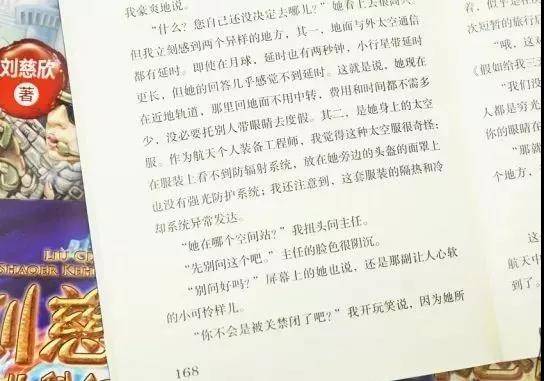 我豪爽地说。
“什么？您自己还没决定去哪儿？”她看上去很高兴。
但我立刻感到两个异样的地方，其一，地面与外太空通信
都有延时。即使在月球，延时也有两秒钟，小行星带延时
更长，但她的回答几乎感觉不到延时。这就是说，她现在
在近地轨道，那里回地面不用中转，费用和时间都不需多
少，没必要托别人带眼睛去度假。其二，是她身上的太空
服。作为航天个人装备工程师，我觉得这种太空服很奇怪：
在服装上看不到防辐射系统，放在她旁边的头盔的面罩上
也没有强光防护系统；我还注意到，这套服装的隔热和冷
却系统异常发达。
“她在哪个空间站？”我扭头问主任。
“先别问这个吧。”主任的脸色很阴沉。
“别问好吗？”屏幕上的她也说，还是那副让人心软
的小可怜样儿。
“你不会是被关禁闭了吧？”我开玩笑说，因为她所
168
着，但
次短暂的旅行后
“哦，这
《假如给我三
“我们没
人都是穷光
你的眼睛在
“那就
个地方，
这
航天中
到了。
刘慈欣
著
LIU C
SHAOER KEH
刘慈